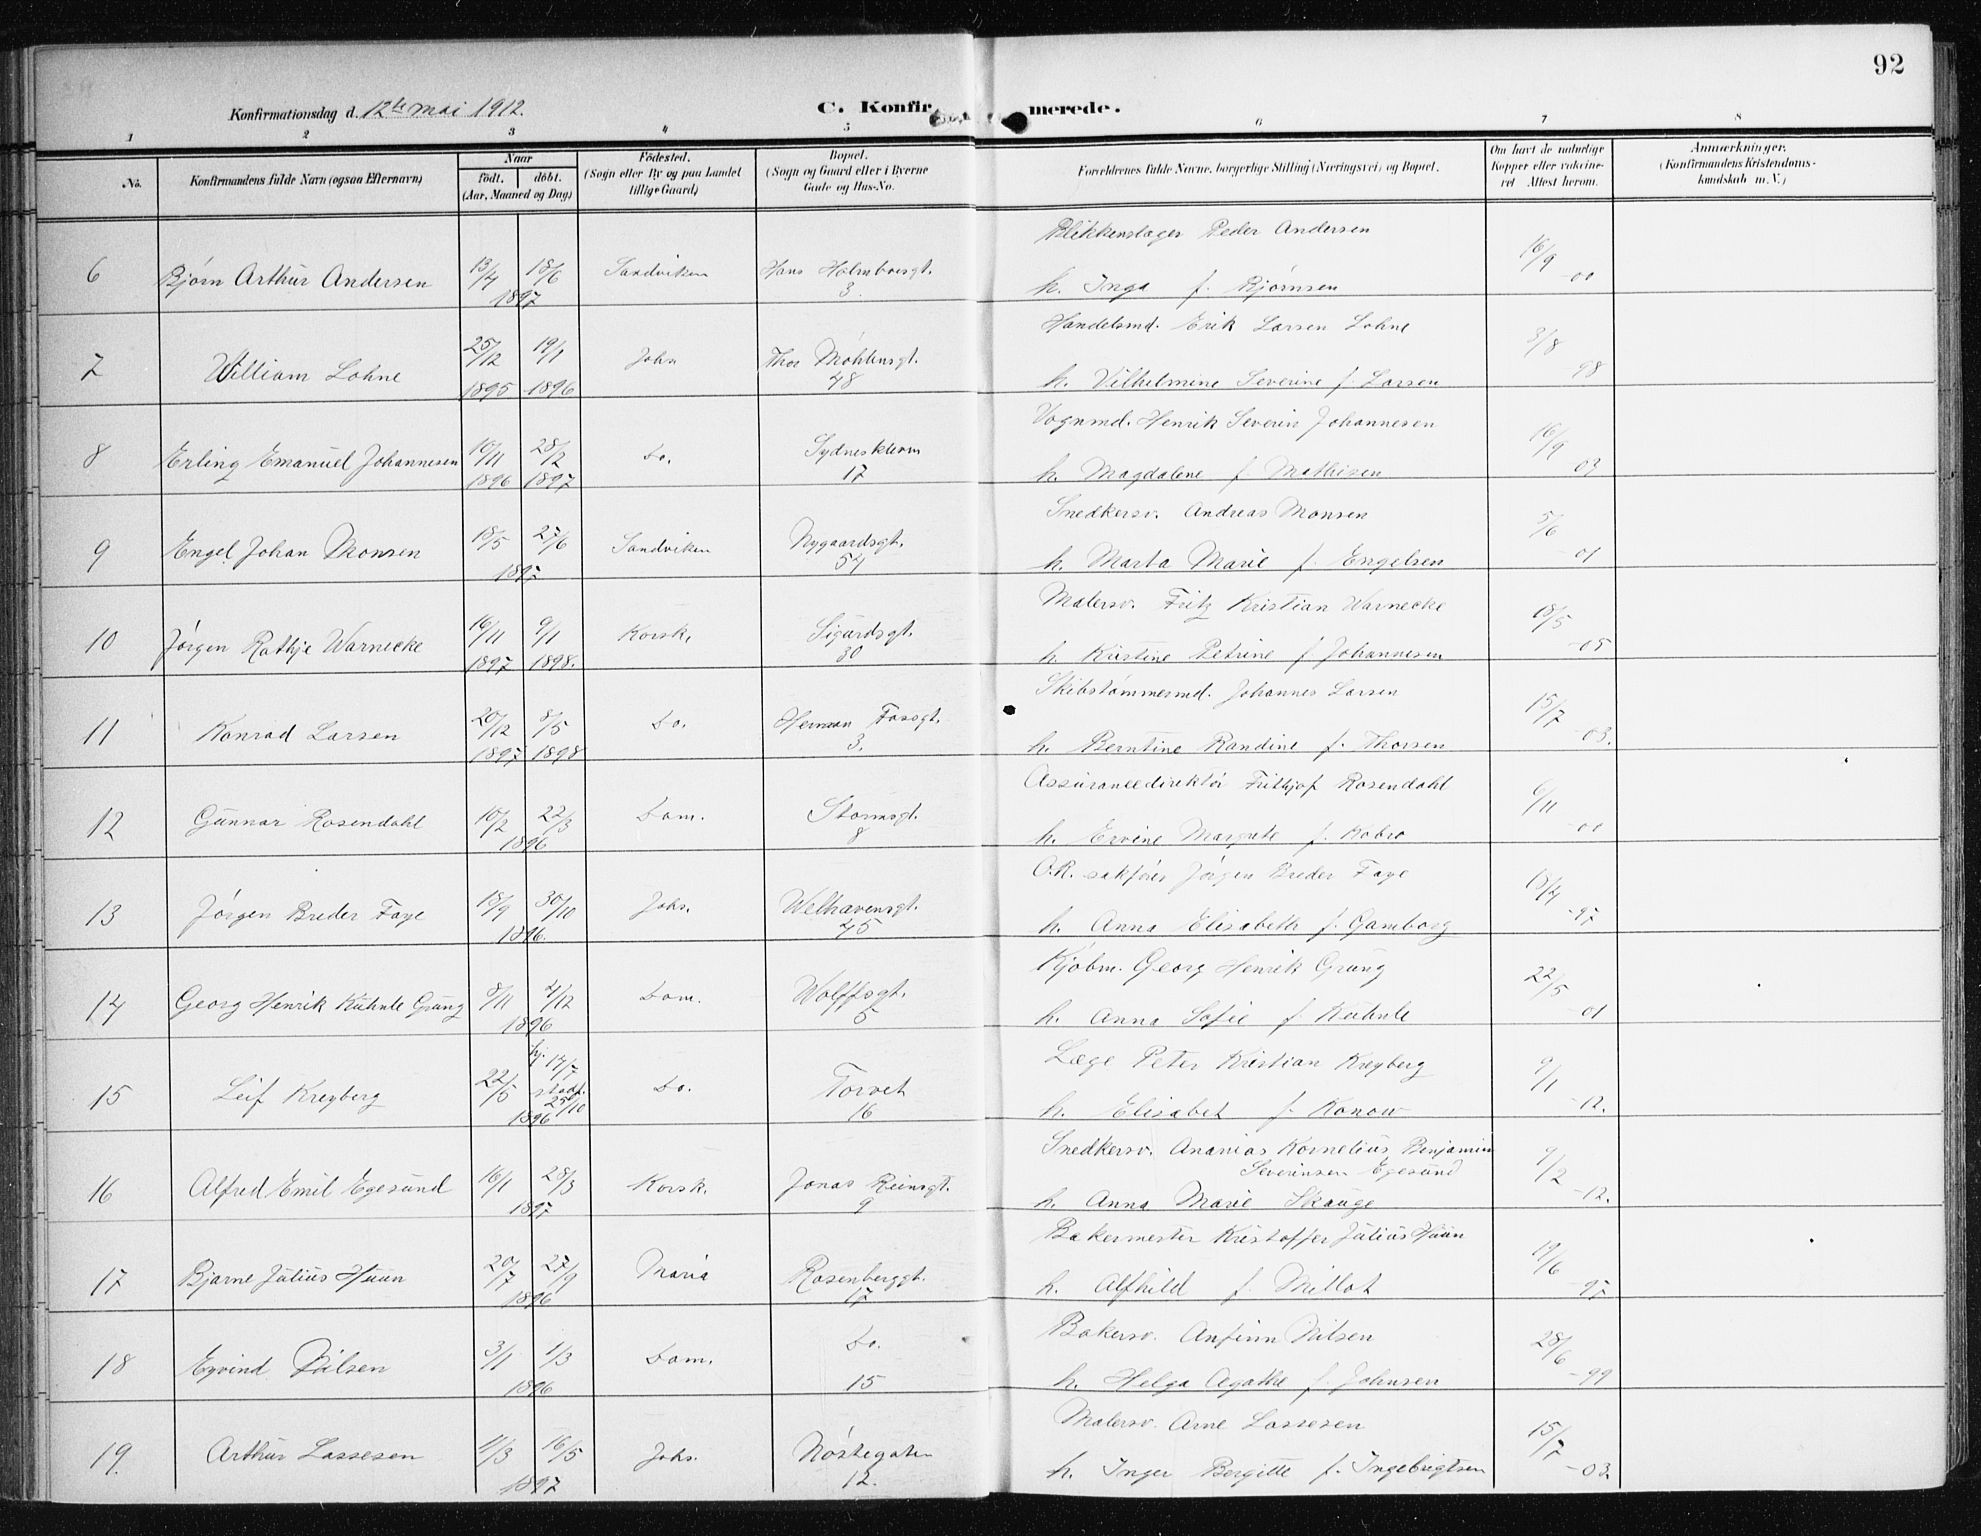 92
Konfirmationsdag d. 12te mai 1912.
C. Konfirmerede.
1 2 3 4 5 6 7 8
No. Konfirmandens fulde Navn (ogsaa Efternavn)
Naar
født. døbt.
(Aar, Maaned og Dag)
Fødested.
(Sogn eller By og paa Landet
tillige Gaard)
Bopæl.
(Sogn og Gaard eller i Byerne
Gade og Hus-No.
Forældrenes fulde Navne, borgerlige Stilling (Næringsvei) og Bopæl.
Om havt de naturlige
Kopper eller vaccine-
ret Attest herom.
Anmærkninger.
(Konfirmandens Kristendoms-
kundskab m. V.)
Blikkenslager Peder Andersen
6 Bjørn Arthur Andersen 13/4 18/6 Sandviken Hans Holmboesgt. 16/9
1897 3. h. Inga f. Bjørnsen -00
Handelsmd. Erik Larsen Lohne
7 William Lohne 25/12 19/1 Johs Thor Møhlensgt. 3/8
1895 1896 48 h. Vilhelmine Severine f. Larsen -98
Vognmd. Henrik Severin Johannesen
8 Erling Emanuel Johannesen 10/11 28/2 Do. Sydneskleven 16/9
1896 1897 17 h. Magdalene f. Mathisen -03
Snedkersv. Andreas Monsen
9 Engel Johan Monsen 18/5 27/6 Sandviken Nygaardsgt. 5/6
1897 54 h. Marta Marie f. Engelsen -01
Malersv. Fritz Kristian Warnecke
10 Jørgen Rathje Warnecke 16/11 9/1 Korsk. Sigurdsgt. 18/5
1897 1898. 30 h. Kristine Petrine f. Johannesen -05
Skibstømmermd. Johannes Larsen
11 Konrad Larsen 20/12 8/5 Do. Herman Fossgt. 15/7
1897 1898 3. h. Berntine Randine f. Thorsen -03.
Assurancedirektør Frithjof Rosendahl
12 Gunnar Rosendahl 10/2 22/3 Dom. Stormsgt. 6/11
1896 8 h. Ervine Margrete f. Kobro -00
O.R. sakfører Jørgen Breder Faye
13 Jørgen Breder Faye 18/9 30/10 Johs. Welhavensgt. 13/4
1896. 45 h. Anna Elisabeth f. Gamborg -97
Kjøbm. Georg Henrik Grung
14 Georg Henrik Kuhnle Grung 8/11 4/12 Dom. Wolffsgt. 22/5
1896 5 h. Anna Sofie f. Kuhnle -01
Læge Peter Kristian Kreyberg
15 Leif Kreyberg 22/5 hj. 14/7 Do. Torvet 9/1
stadf. 25/10
1896 16 h. Elisabet f. Konow -12.
Snedkersv. Ananias Kornelius Benjamin
Severinsen Egesund
16 Alfred Emil Egesund 16/1 28/3 Korsk. Jonas Reinsgt. 9/2
1897 9 h. Anna Marie Skauge -12.
Bakermester Kristoffer Julius Huun
17 Bjarne Julius Huun 20/7 27/9 Maria Rosenberggt. 19/6
1896 17 h. Alfhild f. Millot -97
Bakersv. Anfinn Nilsen
18 Eyvind Nilsen 3/1 1/3 Dom. Do. 28/6
1896 15 h. Helga Agathe f. Johnsen -99
Malersv. Arne Lassesen
19. Arthur Lassesen 11/3 16/5 Johs. Nøstegaten 15/7
1897 12. h. Inger Bergitte f. Ingebrigtsen -03.